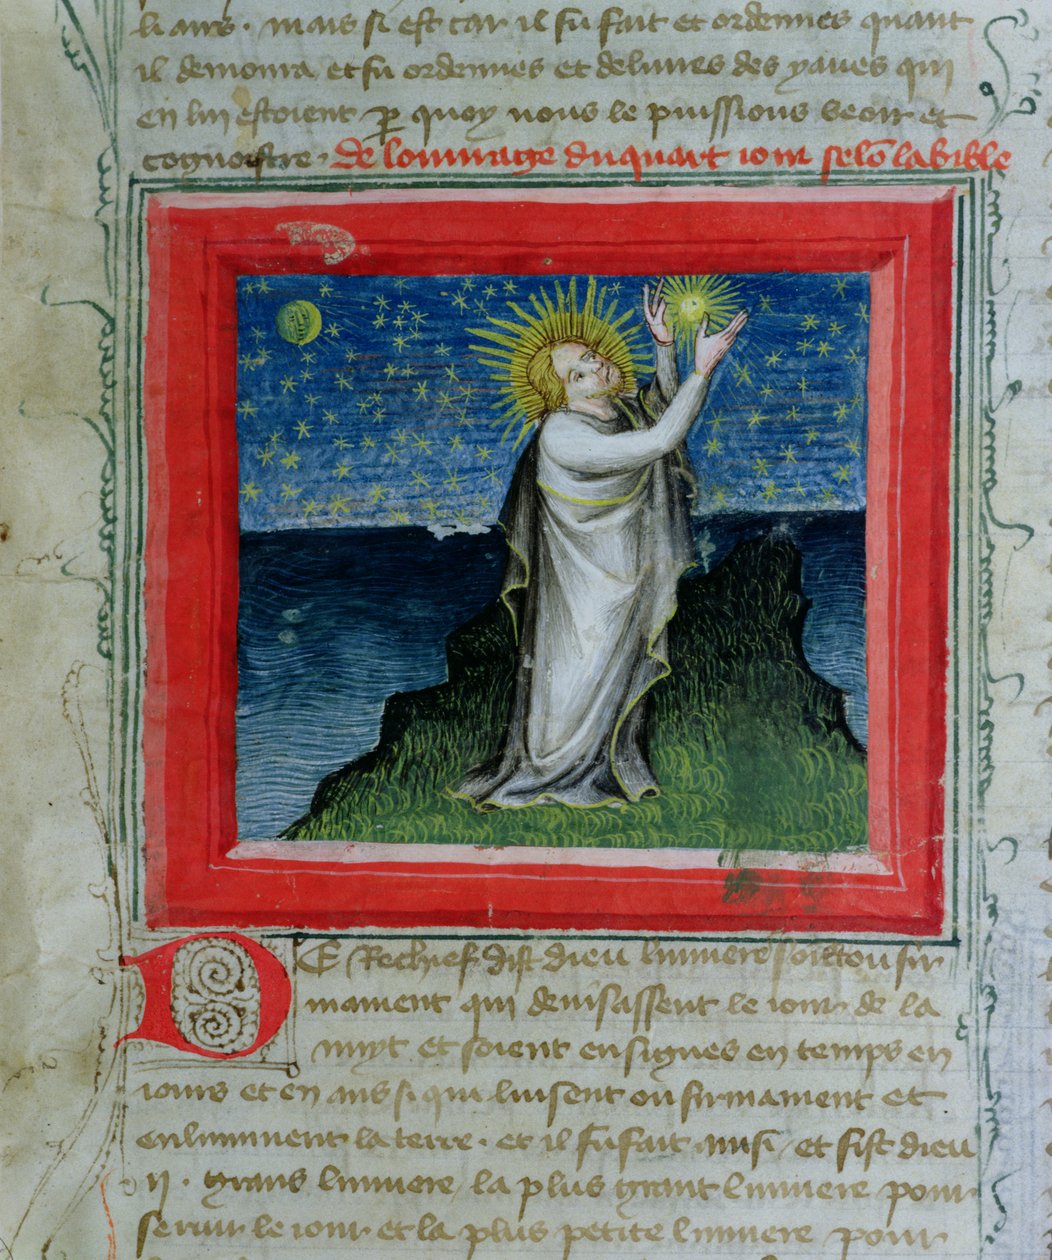 li airs. mais si est car il fu fait et ordennes quant
il demoura et fu ordennes et delivres des yaves qui
en lui estoient p quoy nous le puissions veoir et
cognoistre. de louvrage du quart iour selo la bible
DE Rechief dist dieu lumiere soit ou fir
mament qui devisassent le iour de la
nuyt et soient en signes en temps en
iours et en ans si qui luisent ou firmament et
enluminent la terre. et il fu fait ainsi et fist dieu
ii. grans lumiere la plus grant lumiere pour
servir le iour et la plus petite lumiere pour